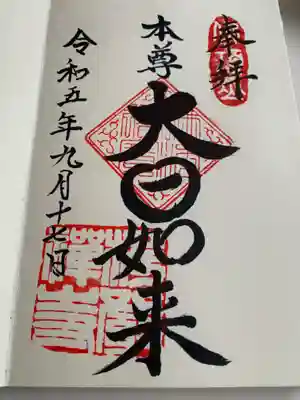 奉拝
本尊
大日如来
令和五年九月十七日